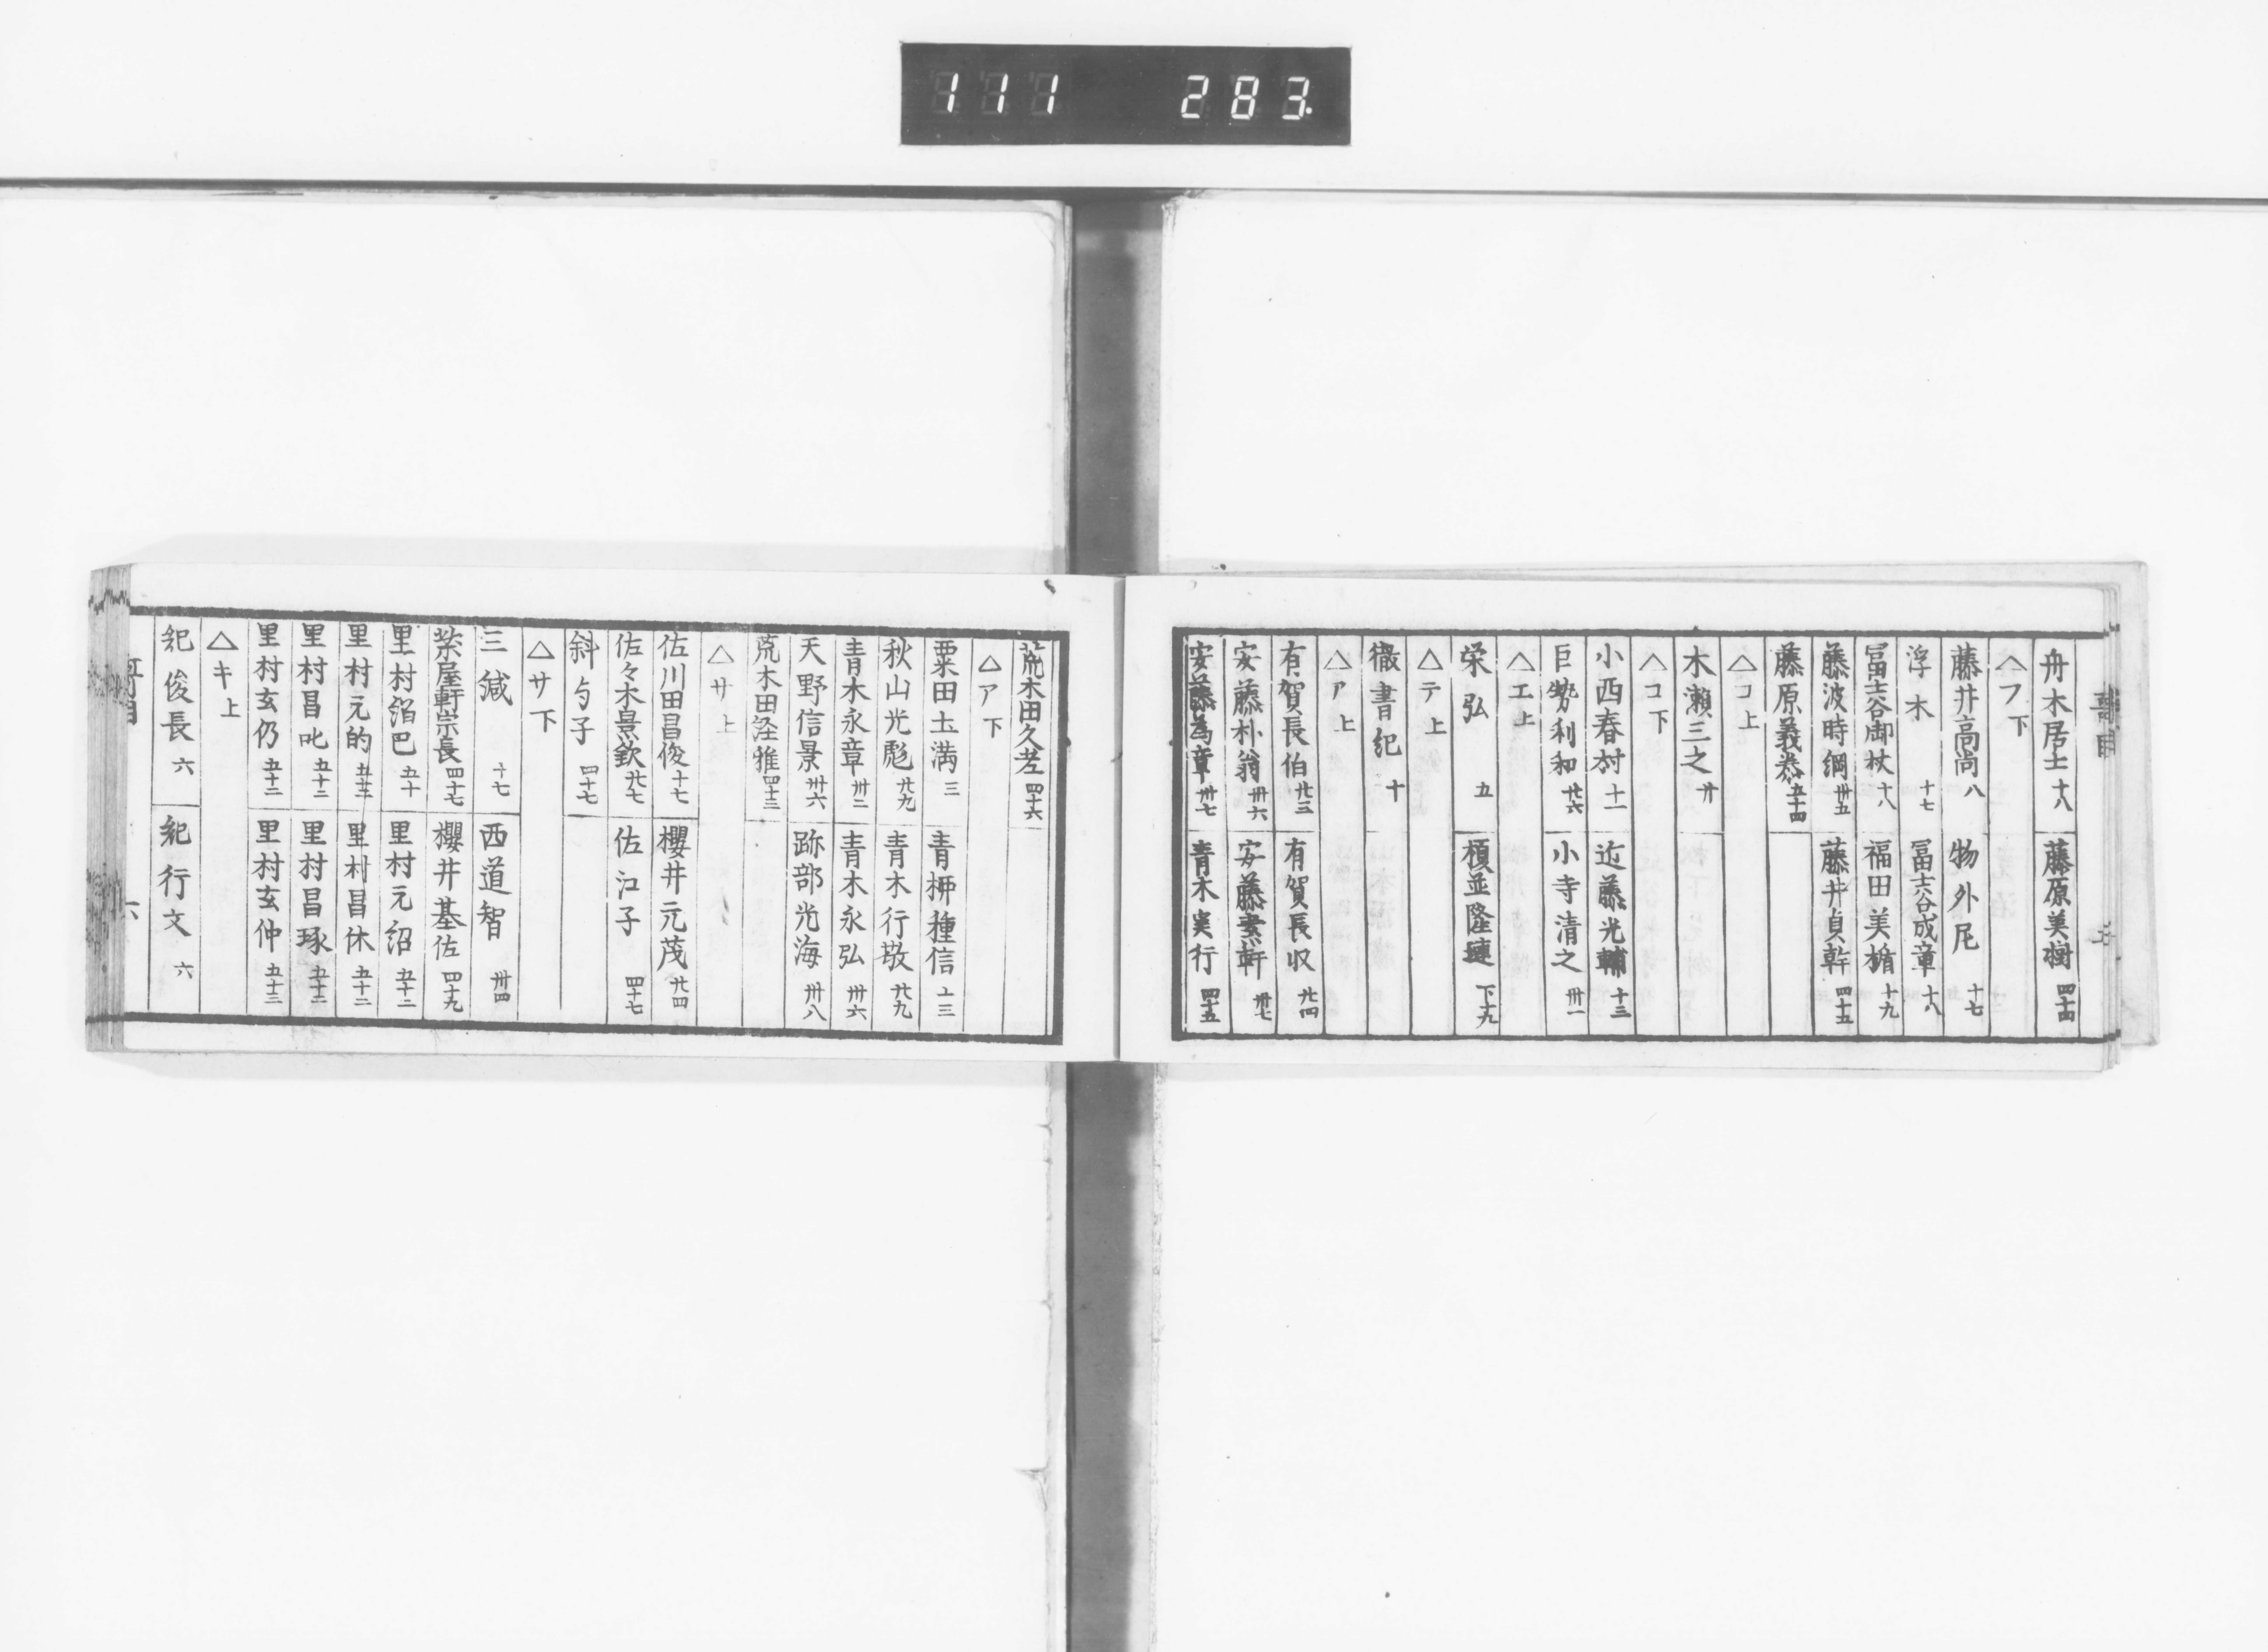 111 283
舟木居士 十八 藤原美樹 四十四
△フ下
藤井高尚 八 物外尼 十七
浮木 十七 冨士谷成章 十八
冨士谷御杖 十八 福田美楯 十九
藤波時綱 卅五 藤井貞幹 四十五
藤原義恭 五十四
△コ上
木瀬三之 廿
△コ下
小西春村 十一 近藤光輔 十三
巨勢利和 廿六 小寺清之 卅一
△エ上
栄弘 五 榎並隆璉 下十九
△テ上
徹書紀 十
△ア上
有賀長伯 廿三 有賀長収 廿四
安藤朴翁 卅六 安藤素軒 卅七
安藤為章 卅七 青木実行 四十五
荒木田久老 四十六
△ア下
粟田土満 三 青柳種信 十三
秋山光彪 廿九 青木行敬 廿九
青木永章 卅二 青木永弘 卅六
天野信景 卅六 跡部光海 卅八
荒木田経雅 四十三
△サ上
佐川田昌俊 十七 櫻井元茂 廿四
佐々木景欽 廿七 佐江子 四十七
斜勾子 四十七
△サ下
三緘 十七 西道智 卅四
柴屋軒宗長 四十七 櫻井基佐 四十九
里村紹巴 五十 里村元紹 五十二
里村元的 五十二 里村昌休 五十二
里村昌叱 五十二 里村昌琢 五十二
里村玄仍 五十二 里村玄仲 五十三
△キ上
紀俊長 六 紀行文 六
六